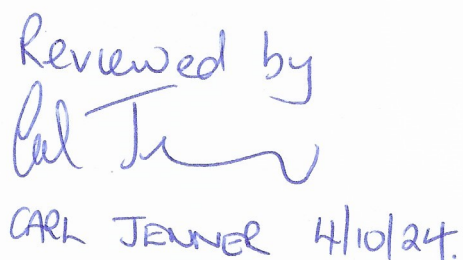 Reviewed by
Carl Je
CARL JENNER 4/10/24.